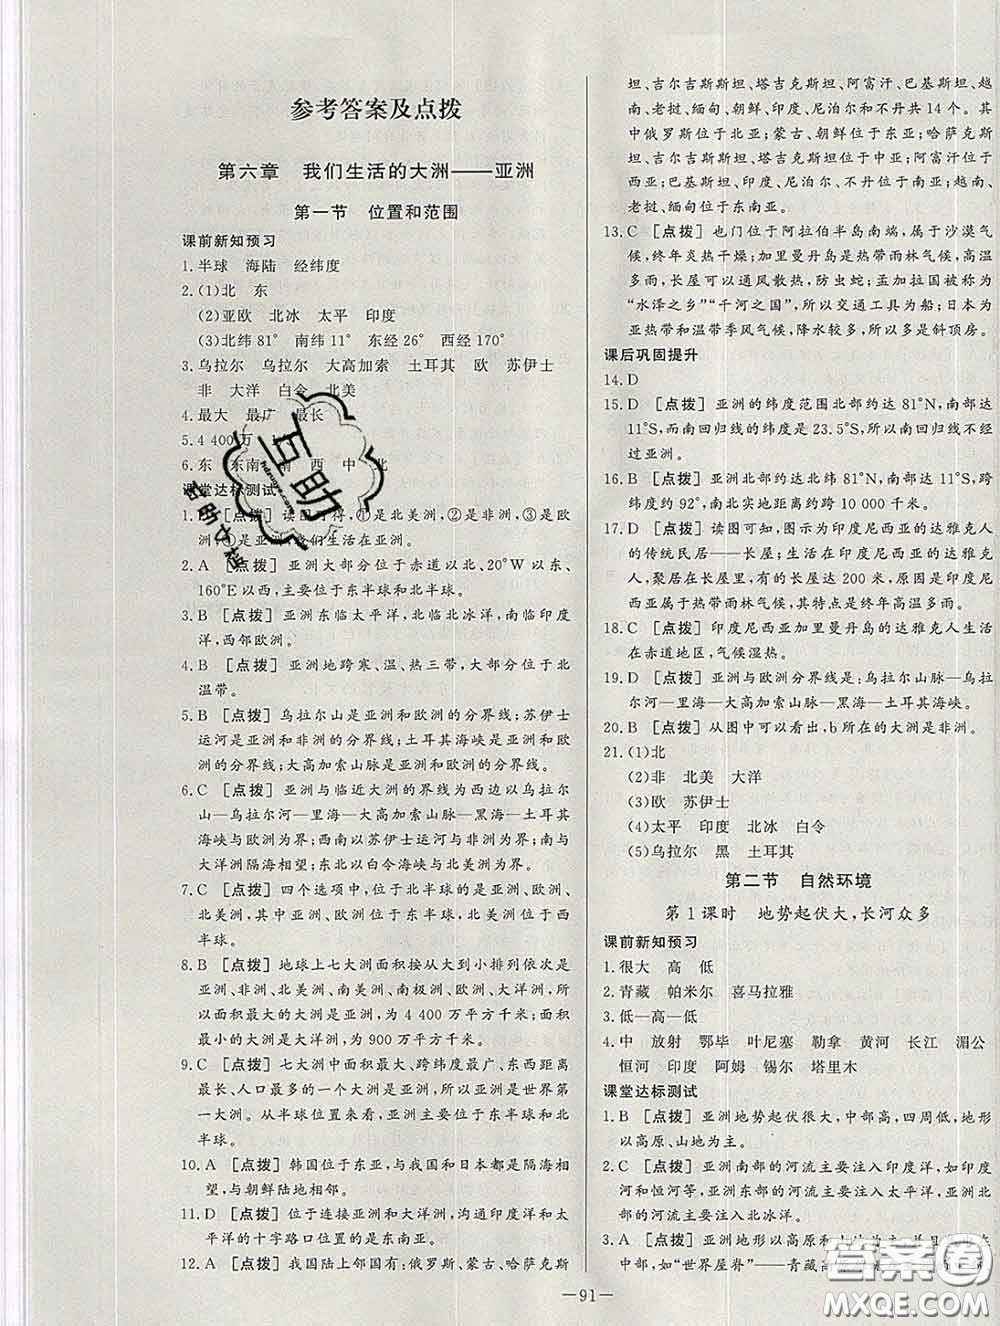 参考答案及点拨
第六章 我们生活的大洲——亚洲
第一节 位置和范围
课前新知预习
1.半球 海陆 经纬度
2.(1)北 东
(2)亚欧 北冰 太平 印度
(3)北纬81° 南纬11° 东经26° 西经170°
3.乌拉尔 乌拉尔 大高加索 土耳其 欧 苏伊士
非 大洋 白令 北美
4.最大 最广 最长
5.4 400万
6.东 东南 南 西 中 北
课堂达标测试
1. [点拨] 读图可得,①是北美洲,②是非洲,③是欧
洲,④是亚洲,我们生活在亚洲。
2.A [点拨] 亚洲大部分位于赤道以北、20°W以东、
160°E以西,主要位于东半球和北半球。
3.B [点拨] 亚洲东临太平洋,北临北冰洋,南临印度
洋,西邻欧洲。
4.B [点拨] 亚洲地跨寒、温、热三带,大部分位于北
温带。
5.B [点拨] 乌拉尔山是亚洲和欧洲的分界线;苏伊士
运河是亚洲和非洲的分界线;土耳其海峡是亚洲和欧
洲的分界线;大高加索山脉是亚洲和欧洲的分界线。
6.C [点拨] 亚洲与临近大洲的界线为西边以乌拉尔
山脉—乌拉尔河—里海—大高加索山脉—黑海—土耳其
海峡与欧洲为界;西南以苏伊士运河与非洲为界;南与
大洋洲隔海相望;东北以白令海峡与北美洲为界。
7.C [点拨] 四个选项中,位于北半球的是亚洲、欧洲、
北美洲,其中亚洲、欧洲位于东半球,北美洲位于西
半球。
8.B [点拨] 地球上七大洲面积按从大到小排列依次是
亚洲、非洲、北美洲、南美洲、南极洲、欧洲、大洋洲,所以
面积最大的是亚洲,为4 400万平方千米;面积
最小的是大洋洲,为900万平方千米。
9.C [点拨] 七大洲中面积最大、跨纬度最广、东西距离
最长、人口最多的一个大洲是亚洲,所以亚洲是世界第
一大洲。从半球位置来看,亚洲主要位于东半球和北
半球。
10.A [点拨] 韩国位于东亚,与我国和日本都是隔海相
望,与朝鲜陆地相邻。
11.D [点拨] 位于连接亚洲和大洋洲,沟通印度洋和太
平洋的十字路口位置的是东南亚。
12.A [点拨] 我国陆上邻国有:俄罗斯、蒙古、哈萨克斯
坦、吉尔吉斯斯坦、塔吉克斯坦、阿富汗、巴基斯坦、越
南、老挝、缅甸、朝鲜、印度、尼泊尔和不丹共14个。其
中俄罗斯位于北亚;蒙古、朝鲜位于东亚;哈萨克斯
坦、吉尔吉斯斯坦、塔吉克斯坦位于中亚;阿富汗位于
西亚;巴基斯坦、印度、尼泊尔、不丹位于南亚;越南、
老挝、缅甸位于东南亚。
13.C [点拨] 也门位于阿拉伯半岛南端,属于沙漠气
候,终年炎热干燥;加里曼丹岛是热带雨林气候,高温
多雨,长屋可以通风散热,防虫蛇;孟加拉国被称为
“水泽之乡”“千河之国”,所以交通工具为船;日本为
亚热带和温带季风气候,降水较多,所以多是斜顶房。
课后巩固提升
14.D
15.D [点拨] 亚洲的纬度范围北部约达81°N,南部达
11°S,而南回归线的纬度是23.5°S,所以南回归线不经
过亚洲。
16.B [点拨] 亚洲北部约达北纬81°N,南部达11°S,跨
纬度约92°,南北实地距离约跨10 000千米。
17.D [点拨] 读图可知,图示为印度尼西亚的达雅克人
的传统民居——长屋;生活在印度尼西亚的达雅克
人,聚居在长屋,长度可达200米,原因是印度尼西
亚属于热带雨林气候,其特点是终年高温多雨。
18.C [点拨] 印度尼西亚加里曼丹岛的达雅克人生活
在赤道地区,气候湿热。
19.D [点拨] 亚洲与欧洲分界线是:乌拉尔山脉—乌拉
尔河—里海—大高加索山脉—黑海—土耳其海峡。
20.B [点拨] 从图中可以看出,b所在的大洲是非洲。
21.(1)北
(2)非 北美 大洋
(3)欧 苏伊士
(4)太平 印度 北冰 白令
(5)乌拉尔 黑 土耳其
第二节 自然环境
第1课时 地势起伏大,长河众多
课前新知预习
1.很大 高 低
2.青藏 帕米尔 喜马拉雅
3.低—高—低
4.中 放射 鄂毕 叶尼塞 勒拿 黄河 长江 湄公
恒河 印度 阿姆 锡尔 塔里木
课堂达标测试
1.B [点拨] 亚洲地势起伏很大,中部高,四周低,地形
以高原、山地为主。
2.C [点拨] 亚洲南部的河流主要注入印度洋,如印度
河和恒河等,亚洲东部的河流主要注入太平洋,亚洲北
部的河流主要注入北冰洋。
3.A [点拨] 亚洲地形以高原和山地为主,并且
中部,如“世界屋脊”——青藏高原
互助
答案圈
MXQE.COM
—91—